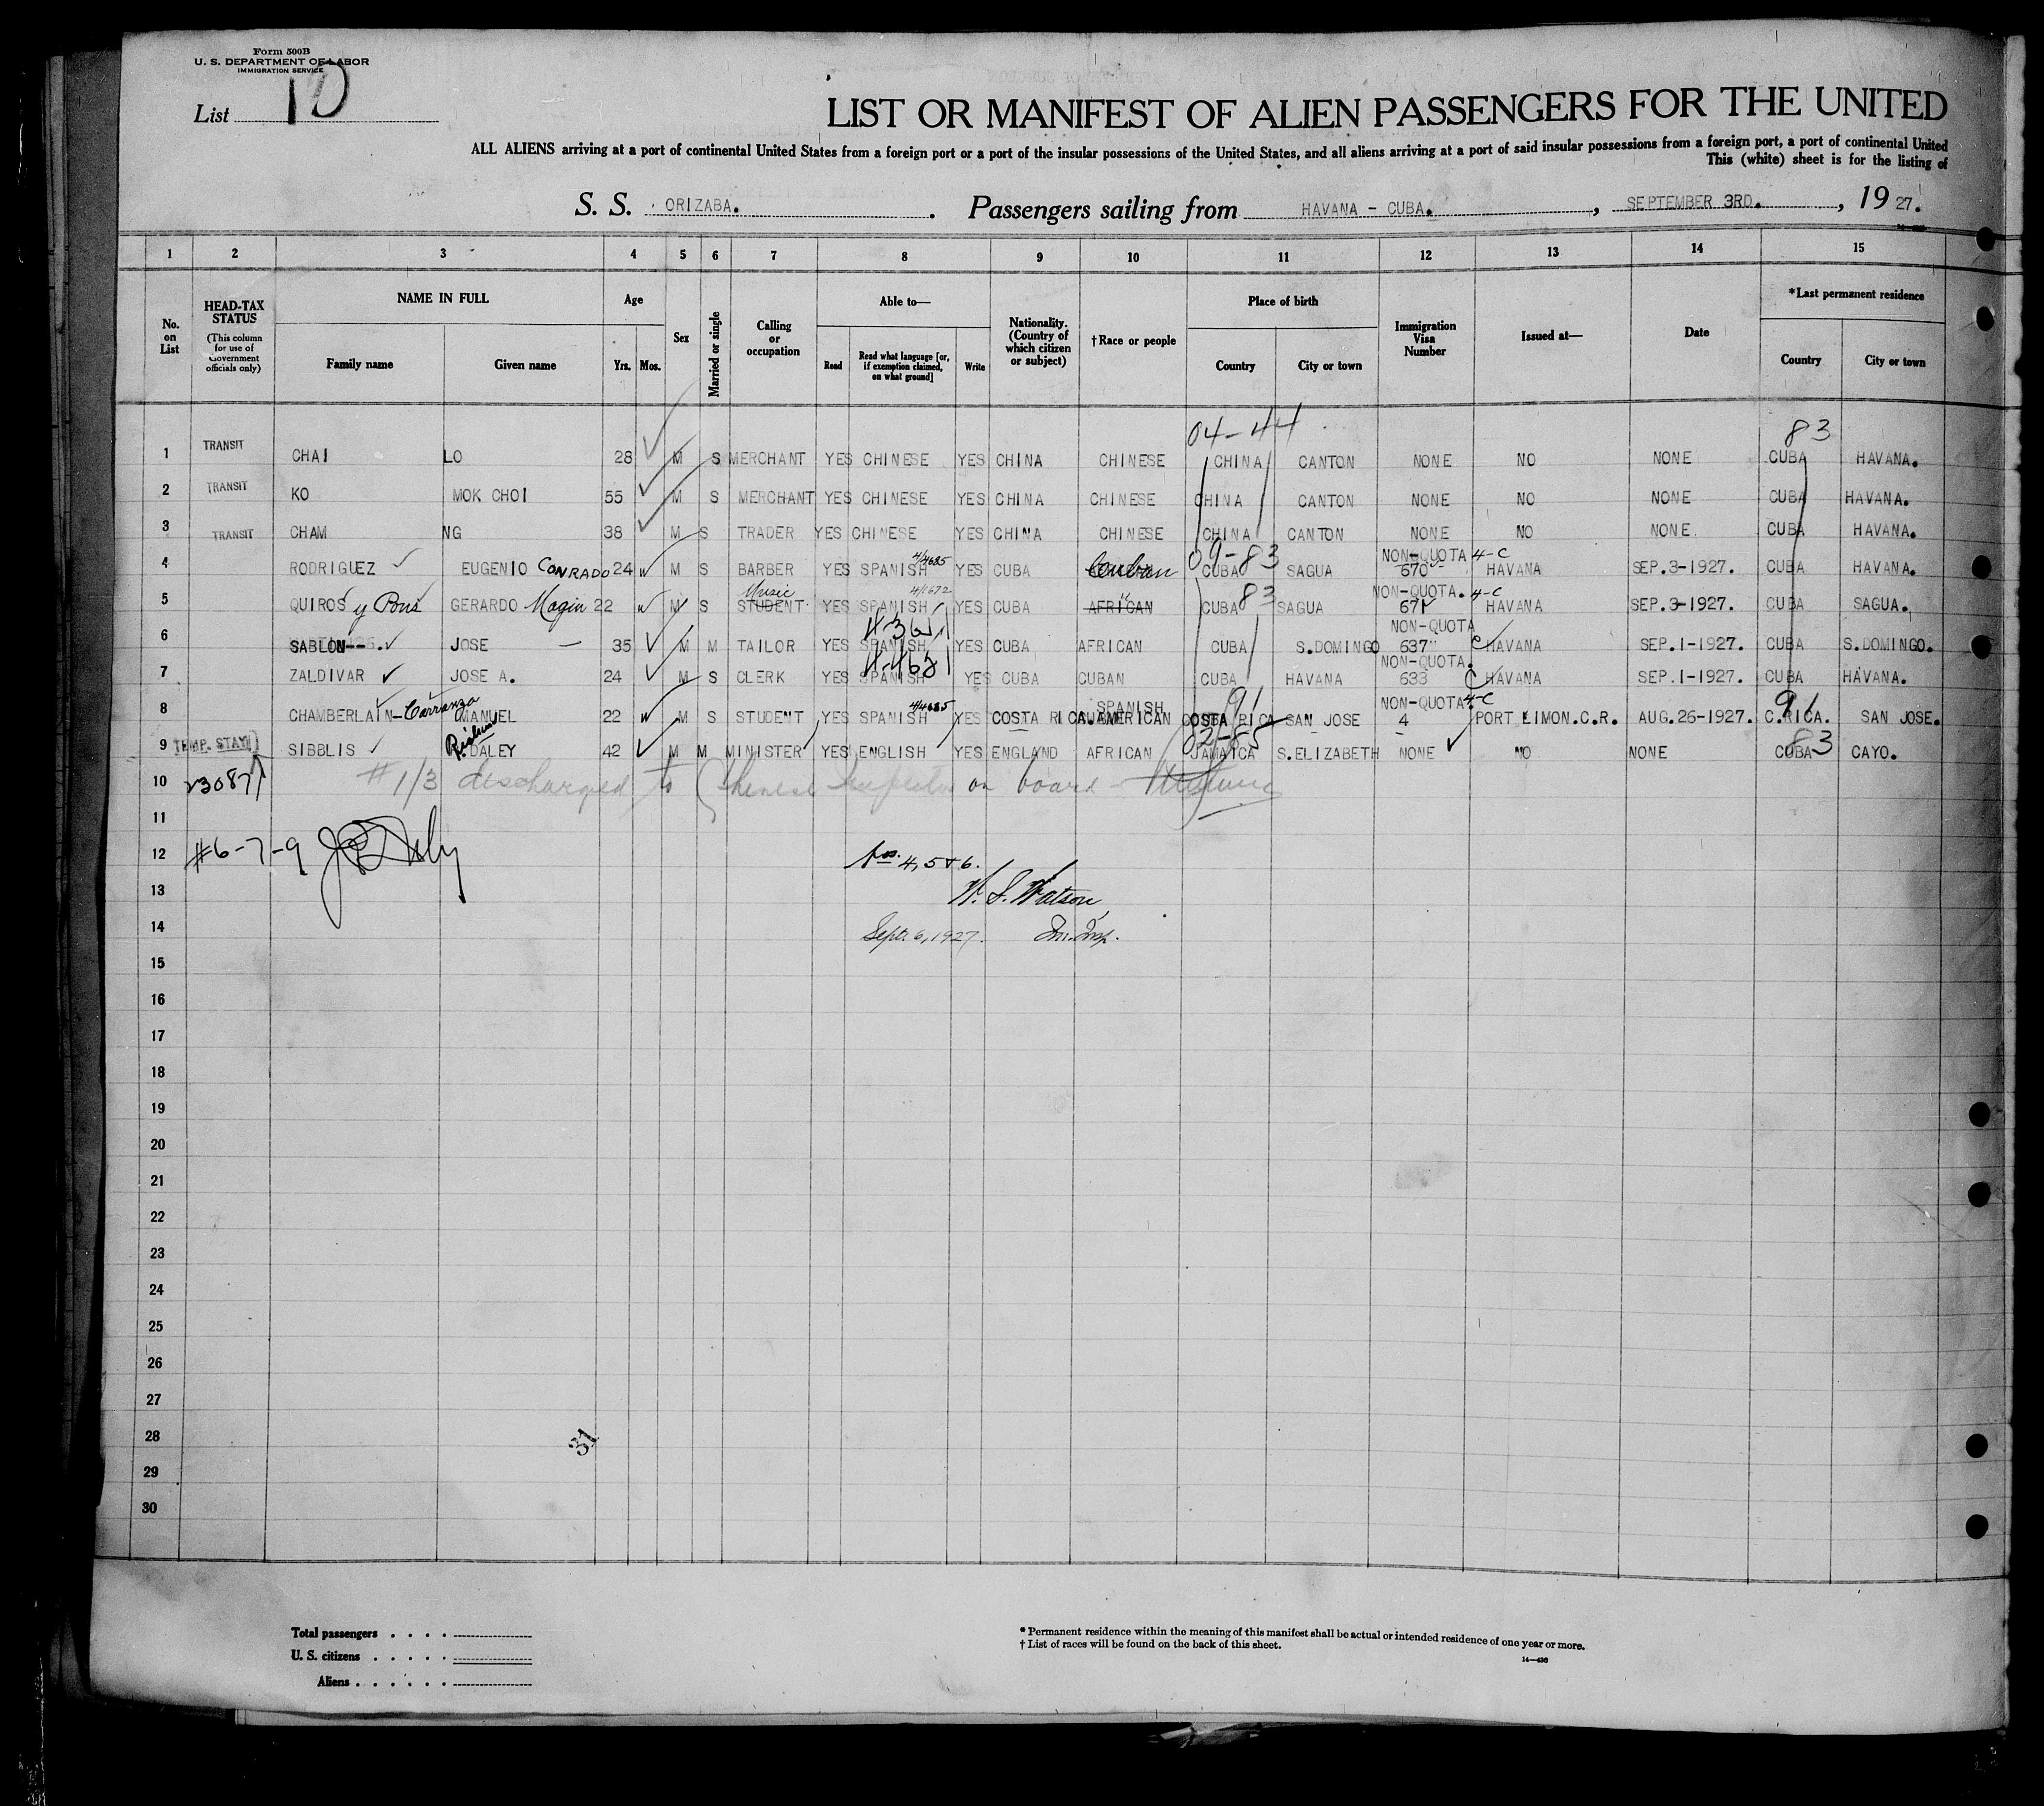 Form 500B
U. S. DEPARTMENT OF LABOR
IMMIGRATION SERVICE
List 10
LIST OR MANIFEST OF ALIEN PASSENGERS FOR THE UNITED
ALL ALIENS arriving at a port of continental United States from a foreign port or a port of the insular possessions of the United States, and all aliens arriving at a port of said insular possessions from a foreign port, a port of continental United
This (white) sheet is for the listing of
S. S. ORIZABA. Passengers sailing from HAVANA - CUBA. , SEPTEMBER 3RD. , 19 27.
1 2 3 4 5 6 7 8 9 10 11 12 13 14 15
No. on List HEAD-TAX STATUS (This column for use of Government officials only) NAME IN FULL Family name Given name Age Yrs. Mos. Sex Married or single Calling or occupation Able to— Read Read what language [or, if exemption claimed, on what ground] Write Nationality. (Country of which citizen or subject) †Race or people Place of birth Country City or town Immigration Visa Number Issued at— Date *Last permanent residence Country City or town
04-44 83
1 TRANSIT CHAI LO 28 M S MERCHANT YES CHINESE YES CHINA CHINESE CHINA CANTON NONE NO NONE CUBA HAVANA.
2 TRANSIT KO MOK CHOI 55 M S MERCHANT YES CHINESE YES CHINA CHINESE CHINA CANTON NONE NO NONE CUBA HAVANA.
3 TRANSIT CHAM NG 38 M S TRADER YES CHINESE YES CHINA CHINESE CHINA CANTON NONE NO NONE. CUBA HAVANA.
4/4685 09-83 NON-QUOTA 4-C
4 RODRIGUEZ EUGENIO CONRADO 24 M S BARBER YES SPANISH YES CUBA Cuban CUBA SAGUA 670 HAVANA SEP.3-1927. CUBA HAVANA.
Music 4/1672 83 NON-QUOTA. 4-C
5 QUIROS y Pons GERARDO Magin 22 M S STUDENT YES SPANISH YES CUBA AFRICAN " CUBA SAGUA 671 HAVANA SEP.3-1927. CUBA SAGUA.
NON-QUOTA
6 SABLON--. JOSE — 35 M M TAILOR YES SPANISH YES CUBA AFRICAN CUBA S.DOMINGO 637 C HAVANA SEP.1-1927. CUBA S.DOMINGO.
4-4681 NON-QUOTA.
7 ZALDIVAR JOSE A. 24 M S CLERK YES SPANISH YES CUBA CUBAN CUBA HAVANA 633 C HAVANA SEP.1-1927. CUBA HAVANA.
4/4685 SPANISH 91 NON-QUOTA 4-C 91
8 CHAMBERLAIN-Carranza MANUEL 22 M S STUDENT YES SPANISH YES COSTA RICA AMERICAN COSTA RICA SAN JOSE 4 PORT LIMON.C.R. AUG.26-1927. C.RICA. SAN JOSE.
02-85 83
9 TEMP. STAY SIBBLIS DALEY 42 M M MINISTER YES ENGLISH YES ENGLAND AFRICAN JAMAICA S.ELIZABETH NONE NO NONE CUBA CAYO.
10 23087 #1/3 discharged to Chinese Inspector on board
11
12 #6-7-9 Nos. 4, 5 + 6.
13 W. S. Watson,
14 Sept. 6, 1927. Im. Insp.
15
16
17
18
19
20
21
22
23
24
25
26
27
28 31
29
30
Total passengers . . . .
U. S. citizens . . . . .
Aliens . . . . . .
* Permanent residence within the meaning of this manifest shall be actual or intended residence of one year or more.
† List of races will be found on the back of this sheet.
14—430